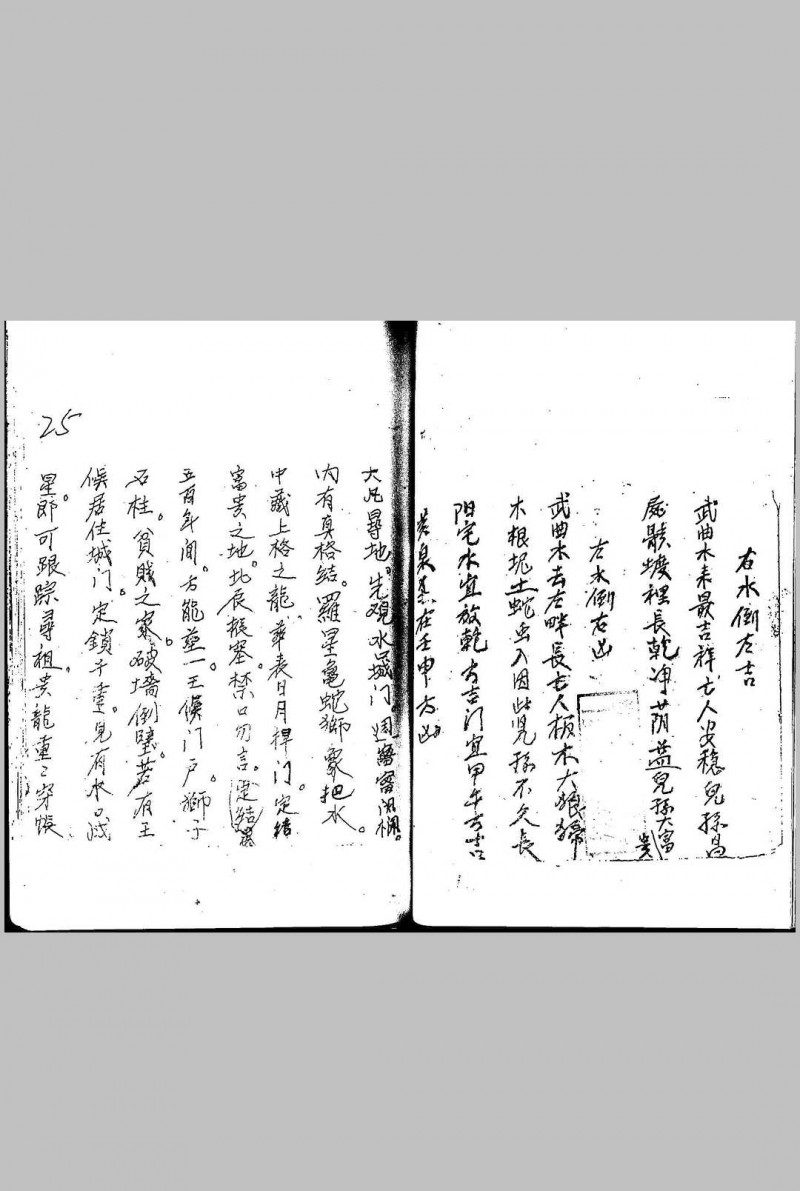 右水倒左吉
武曲水来最吉祥亡人安稳兒孫昌
屍骸坟裡長乾净荫益兒孫大富貴
左水倒右凶
武曲水去左畔長亡人板木大狼
木根坭土蛇虫入因此兒孫不久長
阳宅水宜放乾方吉门宜甲午方吉
黄泉煞在壬申方凶
大凡尋地。先观水口城门。週密闭棚。
内有真格结。羅星亀蛇獅象把水。
中藏上格之龍。華表日月捍门。定结
富贵之地。北辰掀塞。禁口勿言。定结
五百年间。方能並一王侯门户。獅子
石柱。貧賤之家。破墙倒壁。若有王
侯居住城门。定鎖千重。見有水口
星。即可跟踪尋祖。贵龍重〻穿帳
25